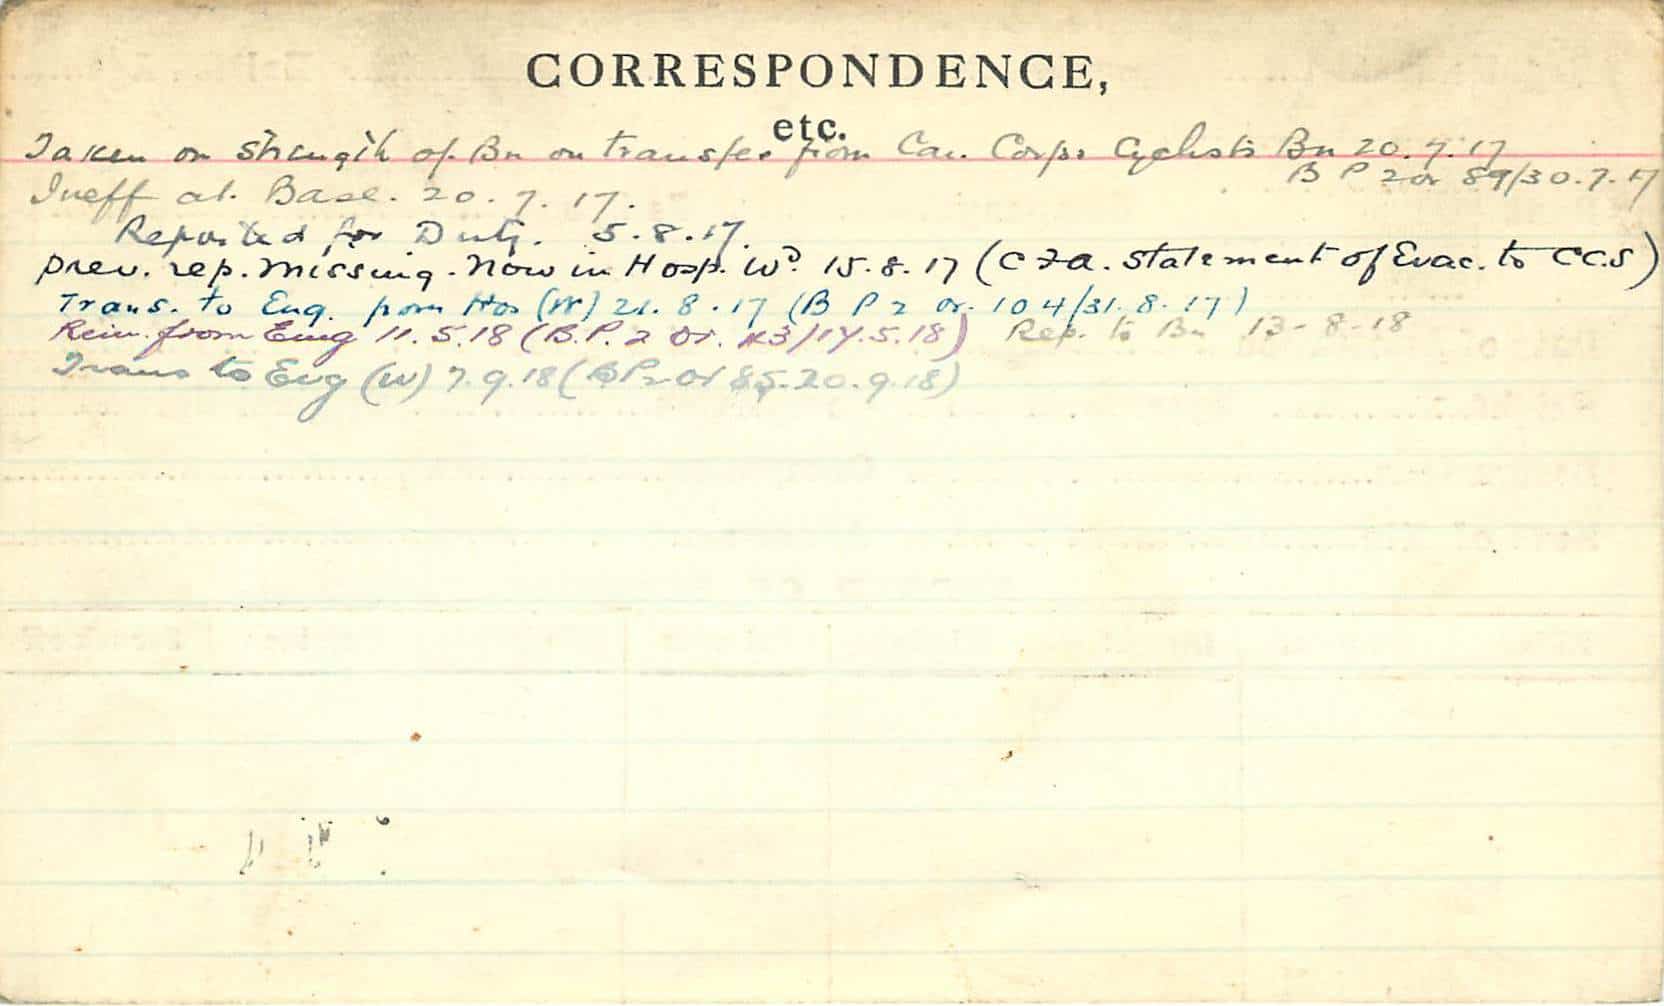 CORRESPONDENCE,
etc.
Taken on strength of Bn on transfer from Cav. Corps Cyclists Bn 20.7.17
B P 2 or 89/30.7.17
Ineff at. Base. 20.7.17.
Reported for Duty. 5.8.17.
prev. rep. missing. Now in Hosp. Wd. 15.8.17 (CFA. statement of Evac. to CCS)
Trans. to Eng. from Hos (W) 21.8.17 (B P 2 or. 104/31.8.17)
Rein. from Eng 11.5.18 (B.P. 2 Or. /14.5.18) Rep. to Bn 13-8-18
Trans to Eng (W) 7.9.18 (BP2 Or 85.20.9.18)